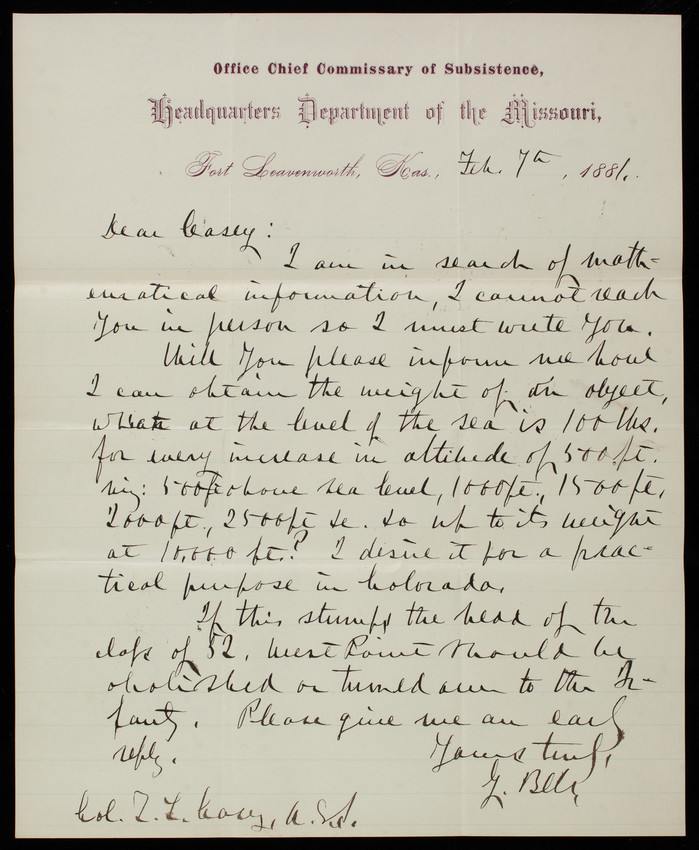 Office Chief Commissary of Subsistence,
Headquarters Department of the Missouri,
Fort Leavenworth, Kas., Feb. 7th, 1881.
Dear Casey:
I am in search of math-
ematical information, I cannot reach
you in person so I must write you.
Will you please inform me how
I can obtain the weight of an object,
which at the level of the sea is 100 lbs.
for every increase in altitude of 500 ft.
viz: 500 ft above sea level, 1000 ft., 1500 ft,
2000 ft., 2500 ft &c. so up to its weight
at 10,000 ft.? I desire it for a prac-
tical purpose in Colorado.
If this stumps the head of the
class of 52, West Point should be
abolished or turned over to the In-
fantry. Please give me an early
reply.
Yours truly,
G. Bell,
Col. T. L. Casey, U.S.A.